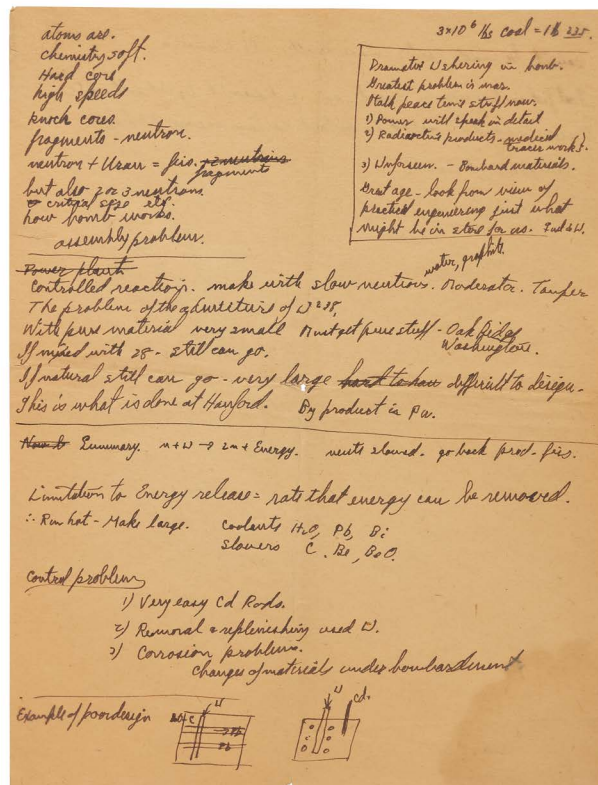 3×10⁶ lbs coal = 1 lb 235.
atoms are.
chemistry soft.
Hard core
high speeds
knock cores.
fragments - neutron.
neutron + Uran = fis. + 2 neutrons
fragments
but also 2 or 3 neutrons
critical size etc.
how bomb works.
assembly problem.
Dramatic Ushering in bomb.
Greatest problem is war.
I talk peace time stuff now.
1) Power will speak in detail
2) Radioactive products - medical
tracer works.)
3) Unforseen. - Bombard materials.
Great age - look from view of
practical engineering just what
might be in store for us.
Power plant
water, graphite.
Controlled reaction. make with slow neutrons. Moderator. Tamper
The problem of the of U 238,
With pure material very small Must get pure stuff - Oak Ridge
Washington.
If mixed with 28 - still can go.
If natural still can go - very large hard to difficult to design -
This is what is done at Hanford. By product is Pu.
Now to Summary. n + U → 2n + Energy. neuts slowed. go back prod. fis.
Limitation to Energy release = rate that energy can be removed.
∴ Run hot - Make large. Coolants H₂O, Pb, Bi
Slowers C, Be, BeO.
Control problem
1) Very easy Cd Rods.
2) Removal & replenishing used U.
3) Corrosion problem.
Changes of materials under bombardment
Example of poor design
U
U
Cd.